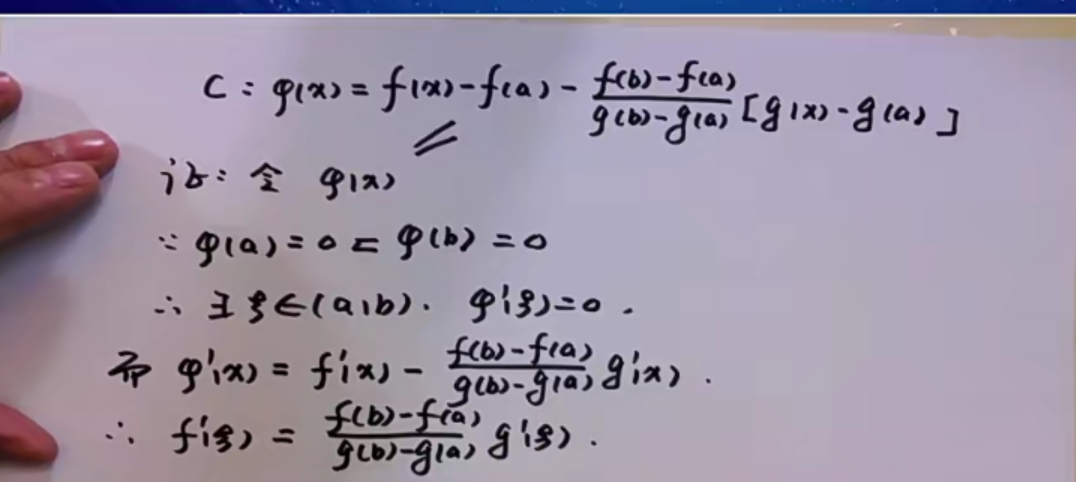 C: φ(x) = f(x) - f(a) - \frac{f(b)-f(a)}{g(b)-g(a)} [g(x) - g(a)]
证: 令 φ(x)
∵ φ(a) = 0 = φ(b) = 0
∴ ∃ ξ ∈ (a, b). φ'(ξ) = 0.
而 φ'(x) = f'(x) - \frac{f(b)-f(a)}{g(b)-g(a)} g'(x).
∴ f'(ξ) = \frac{f(b)-f(a)}{g(b)-g(a)} g'(ξ).